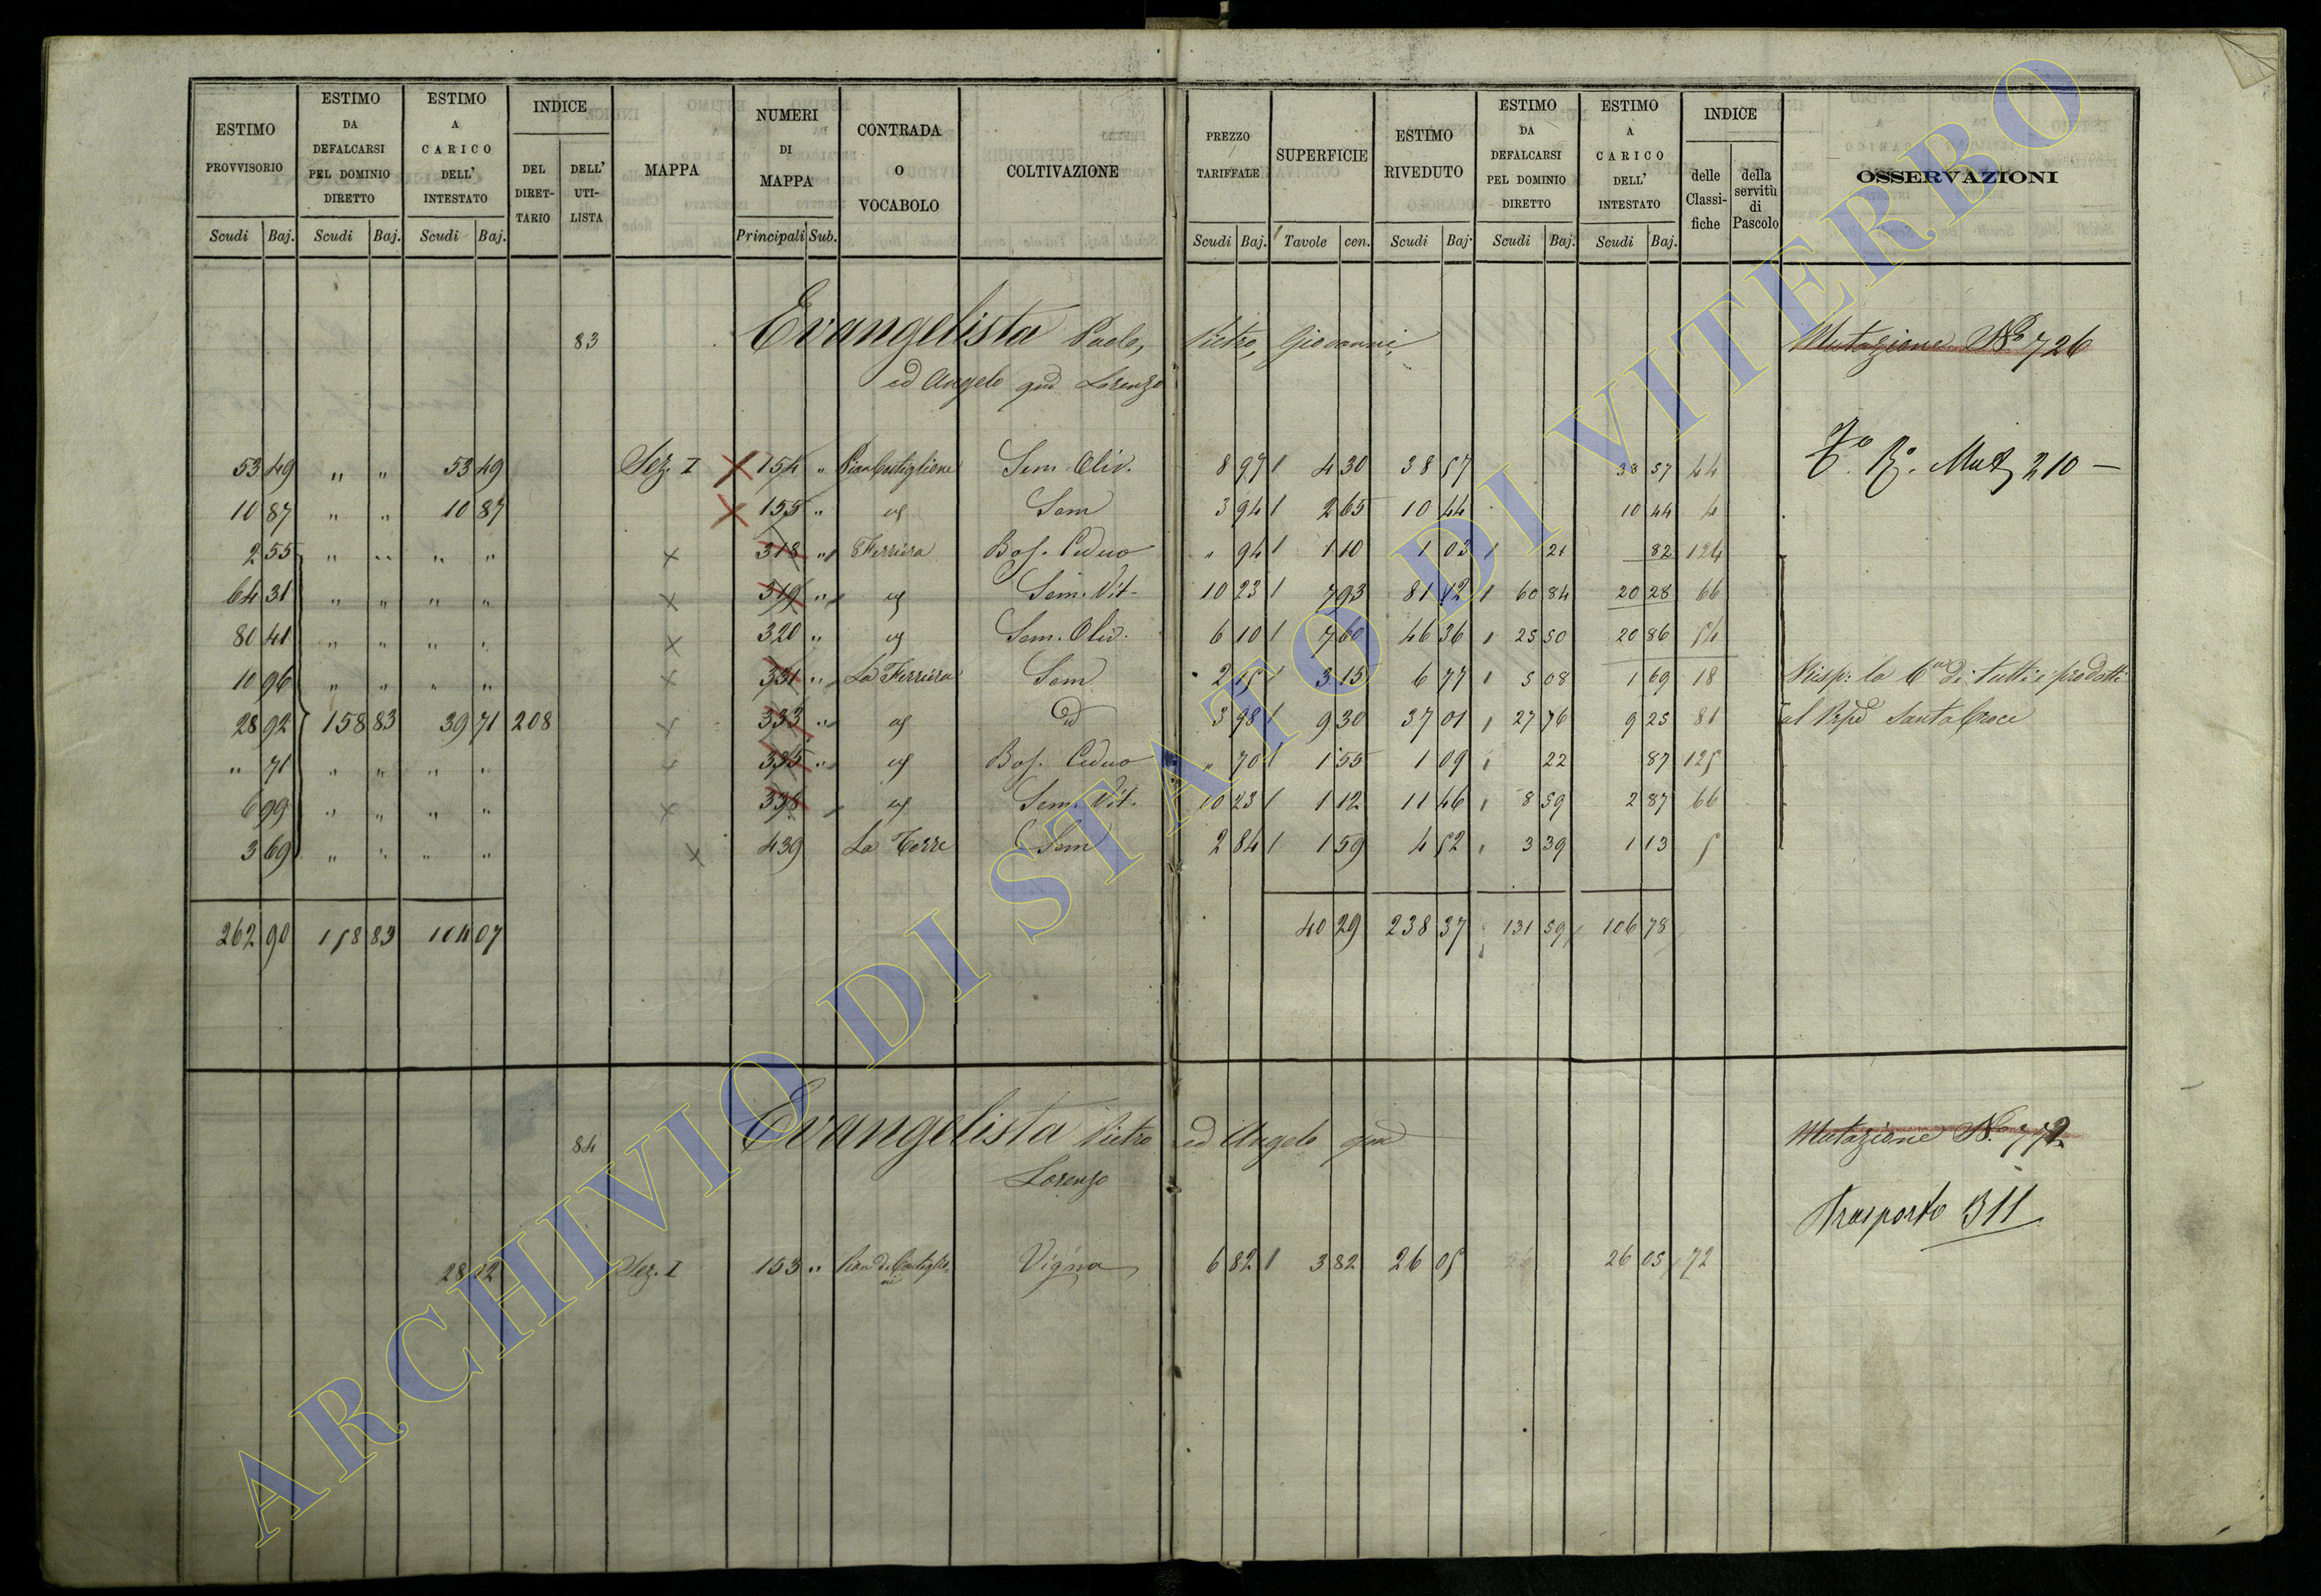 ESTIMO PROVVISORIO | ESTIMO DA DEFALCARSI PEL DOMINIO DIRETTO | ESTIMO A CARICO DELL' INTESTATO | INDICE DEL DIRETTARIO | DELL' UTILISTA | MAPPA | NUMERI DI MAPPA | CONTRADA O VOCABOLO | COLTIVAZIONE | PREZZO TARIFFALE | SUPERFICIE | ESTIMO RIVEDUTO | ESTIMO DA DEFALCARSI PEL DOMINIO DIRETTO | ESTIMO A CARICO DELL' INTESTATO | INDICE delle Classifiche | della servitù di Pascolo | OSSERVAZIONI
Scudi Baj. | Scudi Baj. | Scudi Baj. | Principali Sub. | Scudi Baj. | Tavole cen. | Scudi Baj. | Scudi Baj. | Scudi Baj.
83 Evangelista Paolo, Pietro, Giovanni, Mutazione No 726
ed Angelo qm Lorenzo
53 49 " " 53 49 Sez. I 154 " Pian Castiglione Sem. Oliv. 8 97 4 30 38 57 38 57 44 Mut 210 —
10 87 " " 10 87 155 " id Sem 3 94 2 65 10 44 10 44 4
2 55 " " " " × 318 " Ferriera Bos. Ceduo " 94 1 10 1 03 21 82 124
64 31 " " " " × 319 " id Sem. Vit. 10 23 7 93 81 12 60 84 20 28 66
80 41 " " " " × 320 " id Sem. Oliv. 6 10 7 60 46 36 25 50 20 86 54
10 96 " " " " × 331 " La Ferriera Sem 2 15 3 15 6 77 5 08 1 69 18 Risp: la 6a di tutti i prodotti
28 92 158 83 39 71 208 × 333 " id id 3 98 9 30 37 01 27 76 9 25 81 al Santa Croce
" 71 " " " " × 335 " id Bos. Ceduo " 70 1 55 1 09 22 87 125
6 99 " " " " × 338 id Sem. Vit. 10 23 1 12 11 46 8 59 2 87 66
3 69 " " " " × 439 La Torre Sem 2 84 1 59 4 52 3 39 1 13 5
262 90 158 83 104 07 40 29 238 37 131 59 106 78
84 Evangelista Pietro ed Angelo qm Mutazione No. 772
Lorenzo
Trasporto 311
28 12 Sez. I 153 " Vigna 6 82 3 82 26 05 26 05 72
ARCHIVIO DI STATO DI VITERBO